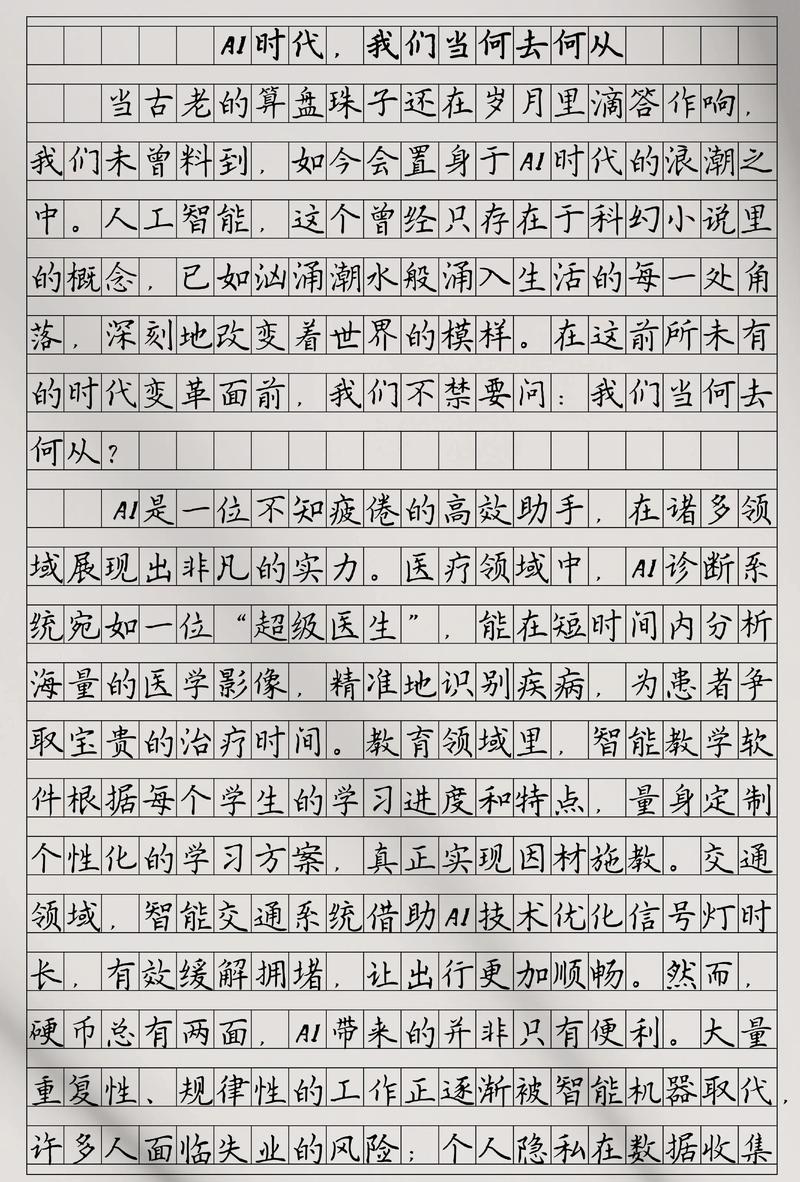 AI时代，我们当何去何从
当古老的算盘珠子还在岁月里滴答作响，
我们未曾料到，如今会置身于AI时代的浪潮之
中。人工智能，这个曾经只存在于科幻小说里
的概念，已如汹涌潮水般涌入生活的每一处角
落，深刻地改变着世界的模样。在这前所未有
的时代变革面前，我们不禁要问：我们当何去
何从？
AI是一位不知疲倦的高效助手，在诸多领
域展现出非凡的实力。医疗领域中，AI诊断系
统宛如一位“超级医生”，能在短时间内分析
海量的医学影像，精准地识别疾病，为患者争
取宝贵的治疗时间。教育领域里，智能教学软
件根据每个学生的学习进度和特点，量身定制
个性化的学习方案，真正实现因材施教。交通
领域，智能交通系统借助AI技术优化信号灯时
长，有效缓解拥堵，让出行更加顺畅。然而，
硬币总有两面，AI带来的并非只有便利。大量
重复性、规律性的工作正逐渐被智能机器取代，
许多人面临失业的风险；个人隐私在数据收集